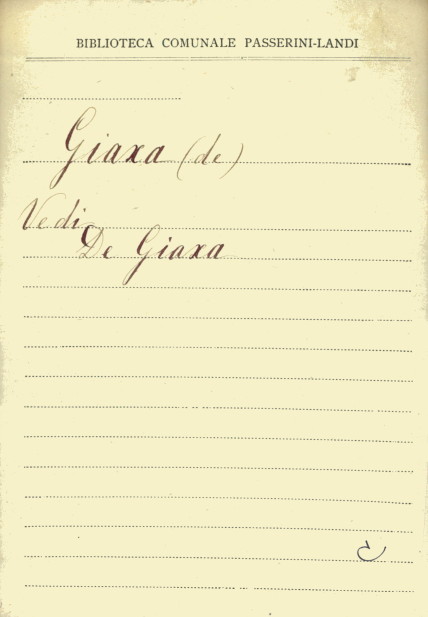 BIBLIOTECA COMUNALE PASSERINI-LANDI
Giaxa (de)
Vedi
De Giaxa